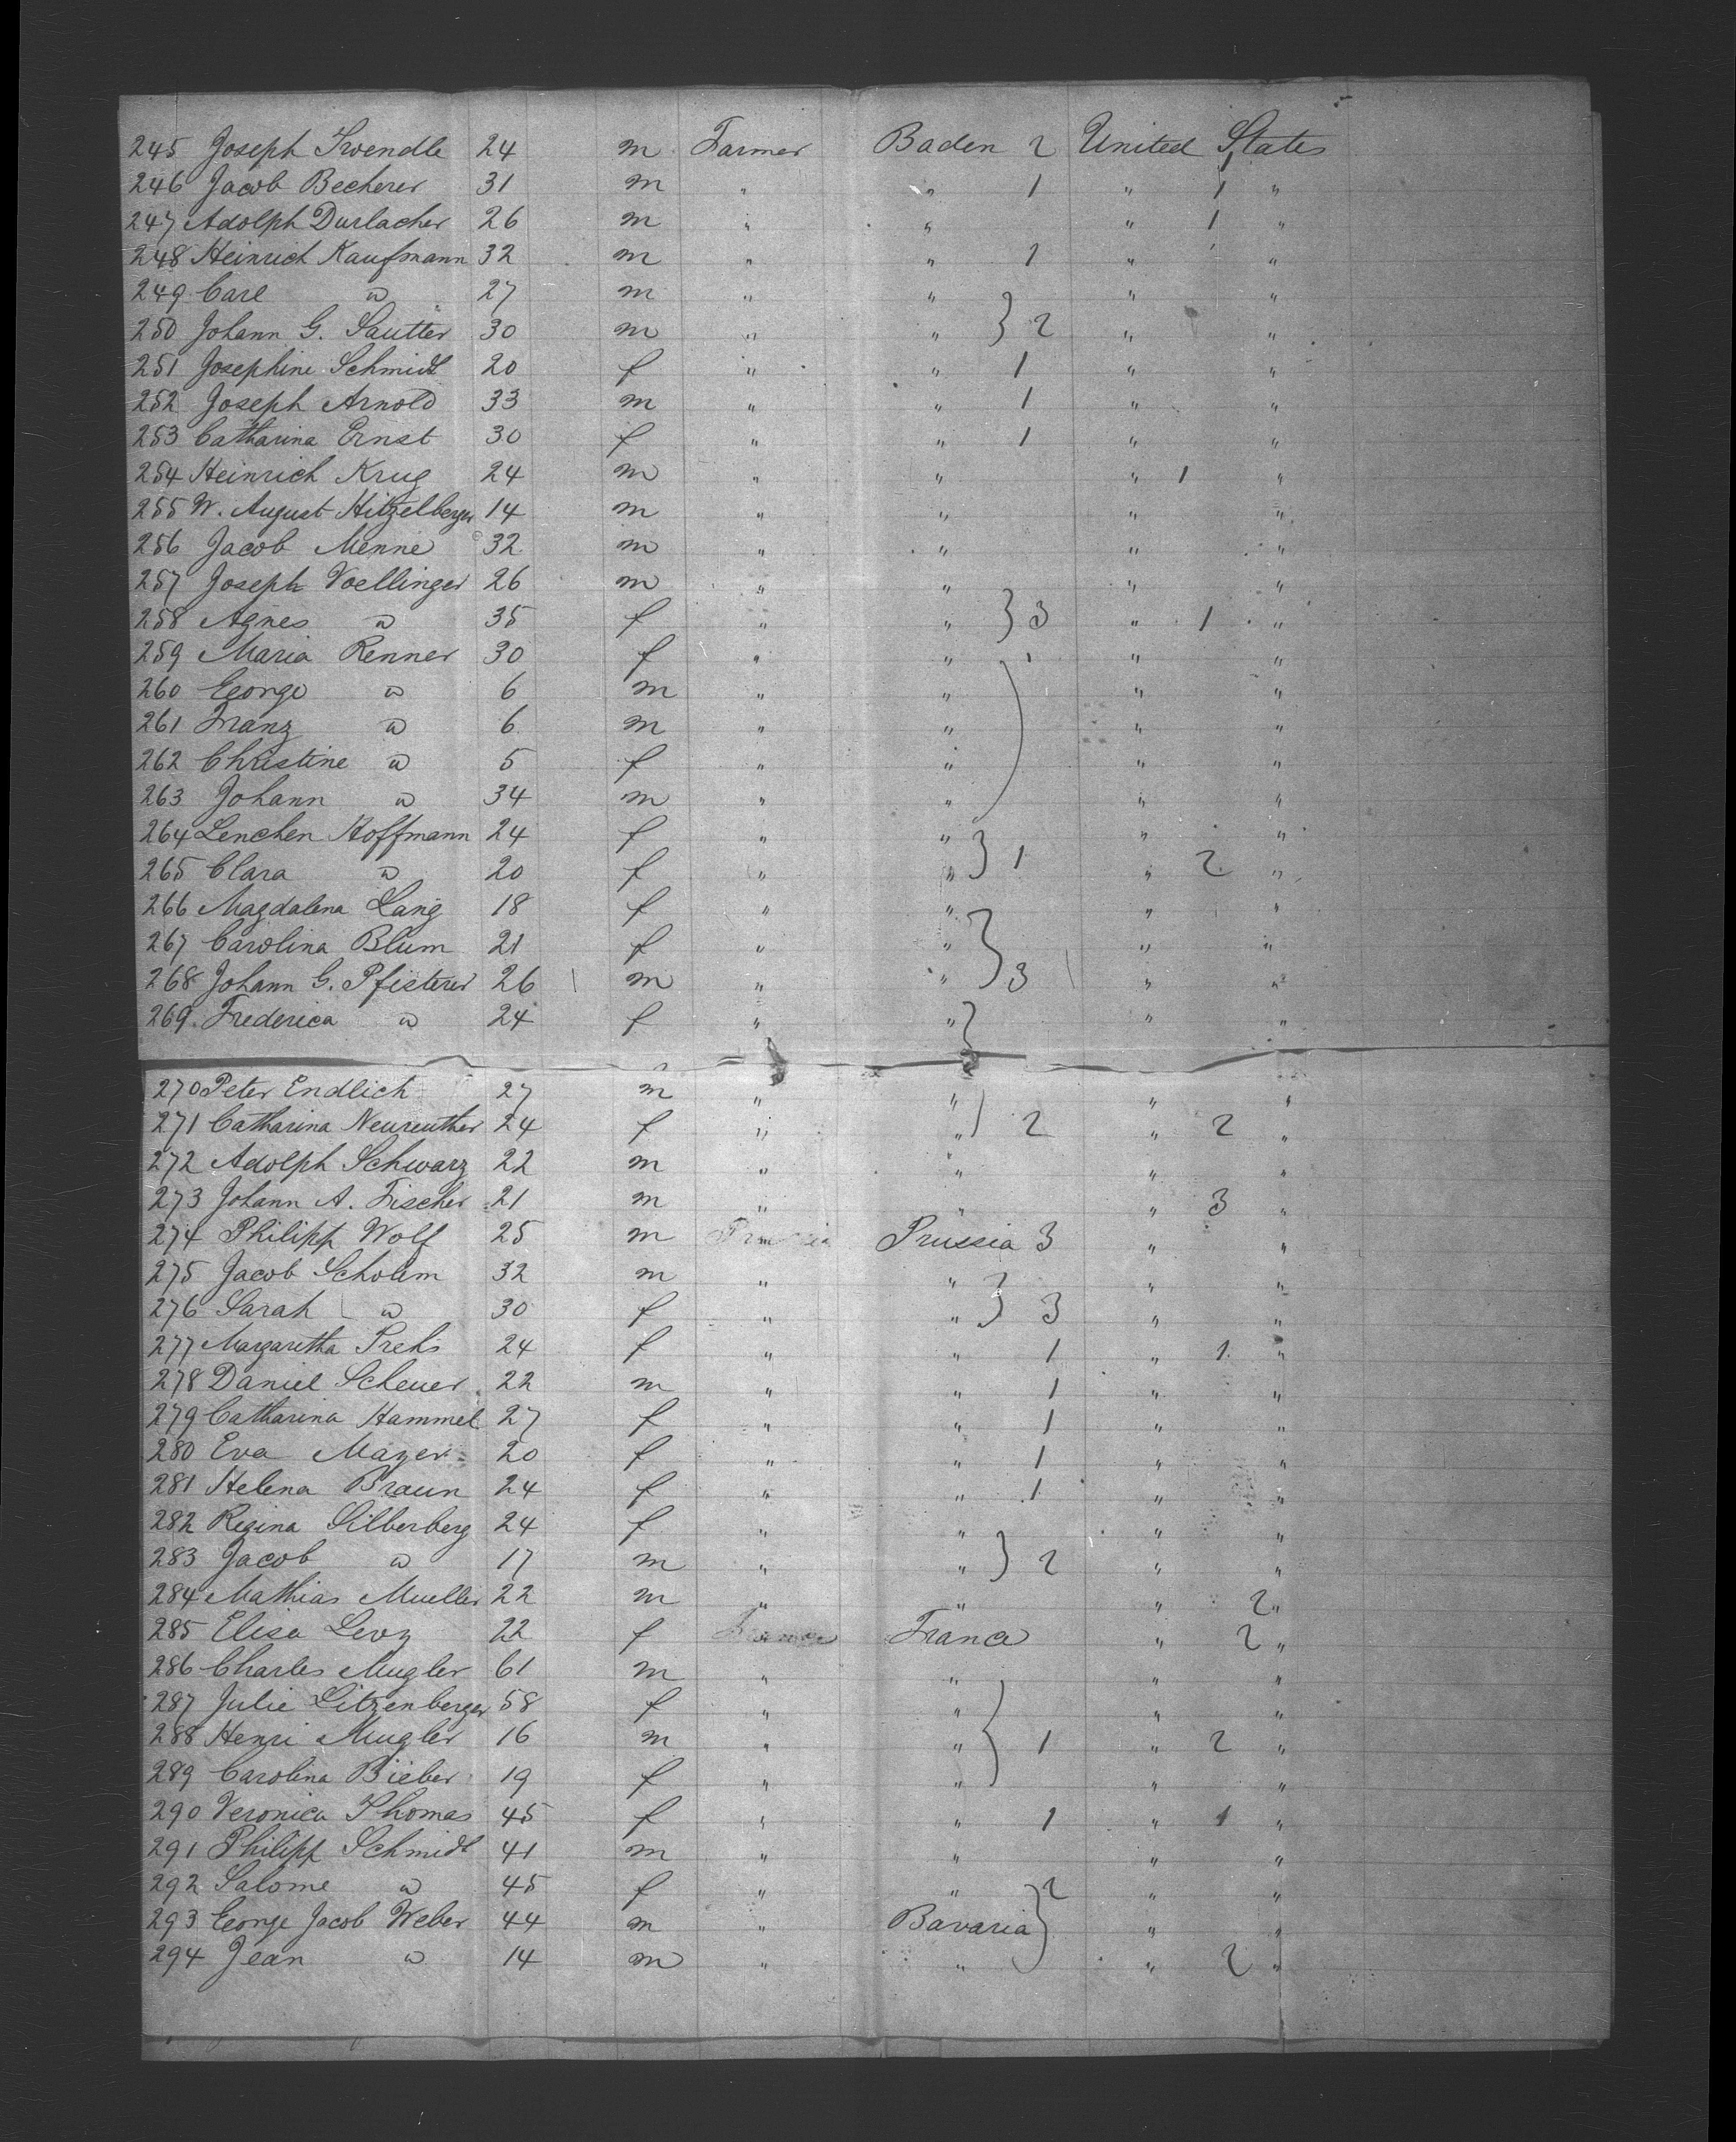 245 Joseph Swendle 24 m Farmer Baden 2 United States 1
246 Jacob Becherer 31 m " " 1 " 1 "
247 Adolph Durlacher 26 m " " " 1 "
248 Heinrich Kaufmann 32 m " " 1 " "
249 Carl " 27 m " " " "
250 Johann G. Sautter 30 m " " } 2 " "
251 Josephine Schmidt 20 f " " 1 " "
252 Joseph Arnold 33 m " " 1 " "
253 Catharina Ernst 30 f " " 1 " "
254 Heinrich Krug 24 m " " " 1 "
255 W. August Hitzelberger 14 m " " " "
256 Jacob Menne 32 m " " " "
257 Joseph Voellinger 26 m " " " "
258 Agnes " 35 f " " } 3 " 1 "
259 Maria Renner 30 f " " " "
260 George " 6 m " " " "
261 Franz " 6 m " " ) " "
262 Christine " 5 f " " " "
263 Johann " 34 m " " " "
264 Lenchen Hoffmann 24 f " " " "
265 Clara " 20 f " " } 1 " 2 "
266 Magdalena Lang 18 f " " " "
267 Carolina Blum 21 f " " } " "
268 Johann G. Pfisterer 26 m " " 3 " "
269 Frederica " 24 f " " } " "
270 Peter Endlich 27 m " " " "
271 Catharina Neureuther 24 f " " ) 2 " 2 "
272 Adolph Schwarz 22 m " " " "
273 Johann A. Fischer 21 m " " " 3 "
274 Philipp Wolf 25 m Prussia 3 " "
275 Jacob Scholem 32 m " " " "
276 Sarah " 30 f " " } 3 " "
277 Margaretha 24 f " " 1 " 1 "
278 Daniel Scheuer 22 m " " 1 " "
279 Catharina Hammel 27 f " " 1 " "
280 Eva Mayer 20 f " " 1 " "
281 Helena Braun 24 f " " 1 " "
282 Regina Silberberg 24 f " " " "
283 Jacob " 17 m " " } 2 " "
284 Mathias Mueller 22 m " " " 2 "
285 Elisa Levy 22 f France " 2 "
286 Charles Mugler 61 m " " " "
287 Julie Litzenberger 58 f " " " "
288 Henri Mugler 16 m " " } 1 " 2 "
289 Carolina Bieber 19 f " " " "
290 Veronica Thomas 45 f " " 1 " 1 "
291 Philipp Schmidt 41 m " " " "
292 Salome " 45 f " " 2 " "
293 George Jacob Weber 44 m " Bavaria } " "
294 Jean " 14 m " " " 2 "